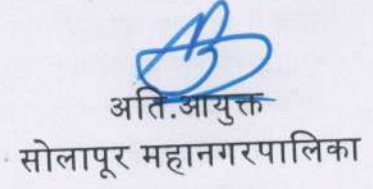 अति.आयुक्त
सोलापूर महानगरपालिका